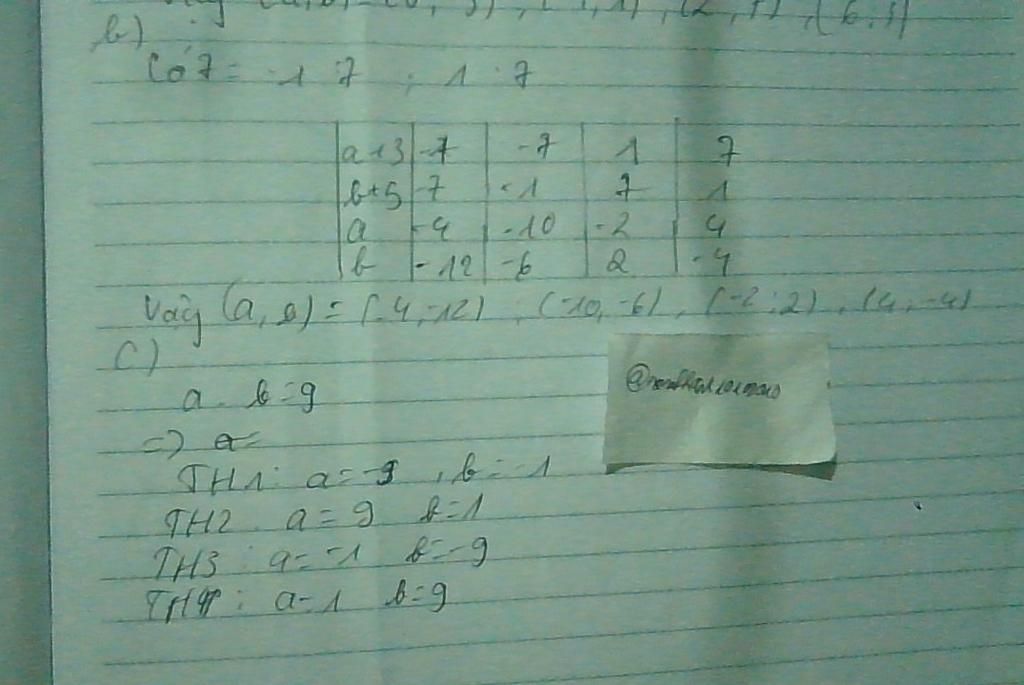 b)
Có 7 = -1 . 7 ; 1 . 7
a+3 -7 -7 1 7
b+5 -7 -1 7 1
a -4 -10 -2 4
b -12 -6 2 -4
Vậy (a, b) = (-4, -12) ; (-10, -6) , (-2 ; 2) , (4 ; -4)
C)
a . b = 9
=> a=
TH1 : a = -9 , b = -1
TH2 : a = 9 b = 1
TH3 : a = -1 b = -9
TH4 : a = 1 b = 9